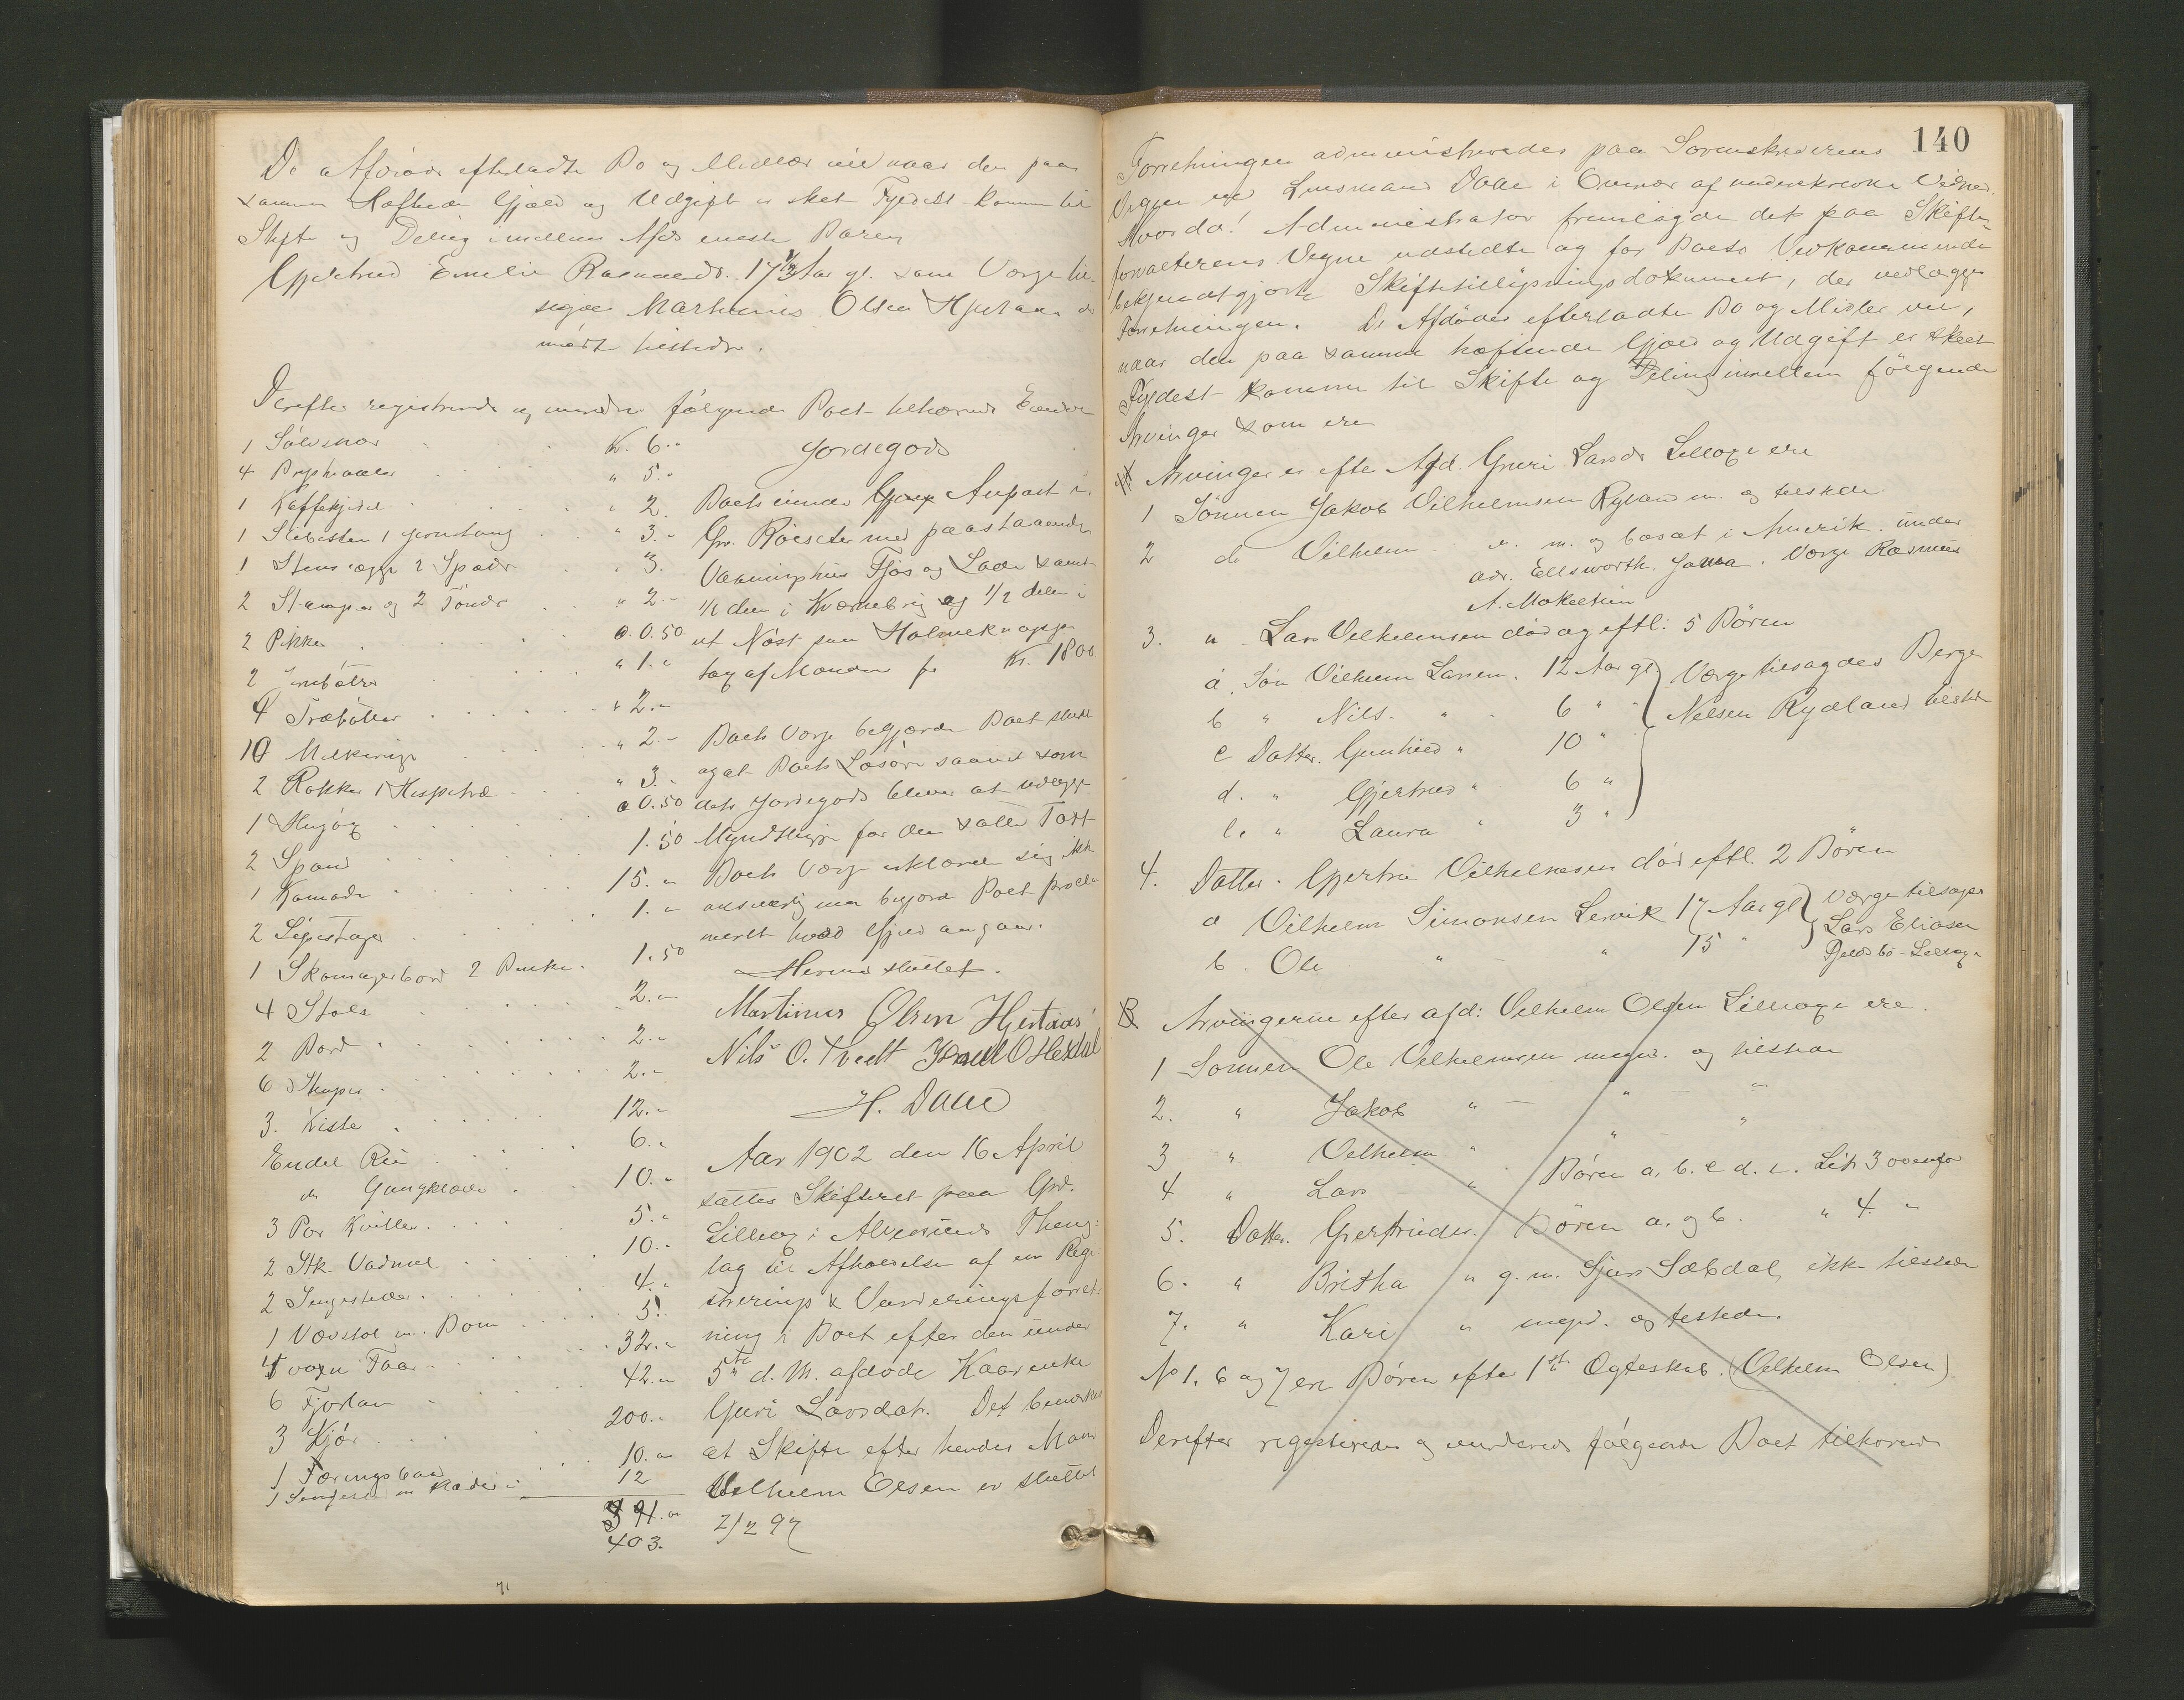 De Afdødes efterladte Bo og Midler vil naar den paa
samme Hæftende Gjæld og Udgift er sket Fyldest komme til
Skifte og Deling imellem Afds eneste Barn
Gjertrud Emelie Rasmusdr. 17 1/2 Aar gl. som Værge til-
sagdes Martinus Olsen Hjertaas der
mødte tilstede.
Derefter registreredes og vurderedes følgende Boet tilhørende Eiendele
1 Sølvsnor Kr. 6."
4 " 5."
1 Kaffekjedel " 2.
1 Slibesten 1 Jernstang " 3."
1 2 Spader " 3.
2 Stamper og 2 Tønder " 2.-
2 Pikker 0.50
2 " 1."
4 Træbøtter " 2.-
10 Melkeringe " 2.-
2 Rokker 1 Hespetræ " 3.-
1 0.50
2 Spand 1.50
1 Komode 15. "
2 Lysestager 1. "
1 Skomagerbord 2 Bænke 1.50
4 Stole 2.-
2 Bord 2.-
6 2.-
3. Kiste 12.-
Endel 6.-
do Gangklæder 10.-
3 Par Kvitler 5.-
2 Stk. Vadmel 10.-
2 Sengesteder 4.-
1 Vævstol m. Bom 5.
4 voxn Faar 32.-
6 42.-
3 Kjør 200.-
1 Færingsbaad 10.-
1 m Klæder i 12
391.-
403.
Jordegods
Boets Anpart i
Gr. med paastaaende
Vaaningshus Fjøs og Lade samt
1/2 del i Kværnebrug og 1/2 del i
et Nøst paa
tax af Mændene for Kr. 1800
Boets Værge begjærede Boet sluttet
og at Boets Løsøre saavel som
dets Jordegods bliver at udlægge
Myndlinge for den satte Taxt
Boets Værge erklærede sig ikke
ansvarlig men begjærede Boet
hvad Gjæld angaar.
Hermed sluttet.
Martinus Olsen Hjertaas
Nils O. Tvedt
H. Daae
Aar 1902 den 16 April
sattes Skifteret paa Grd.
Lilleøg i Alversunds Thing-
lag til Afholdelse af en Regi-
strerings & Vurderingsforret-
ning i Boet efter den under
5te d. M. afdøde Kaarenke
Guri Larsdat. Det bemærkes
at Skifte efter hendes Mand
Vilhelm Olsen er sluttet
2/2 97
140
Forretningen administreredes paa Sorenskriverens
Vegne ved Lensmand Daae i Overvær af underskrevne Vidner.
Hvorda! Administrator fremlagde det paa Skifte-
forvalterens Vegne udstedte og for Boets Vedkommende
bekjendtgjorte Skiftetillysningsdokument, der vedlægges
Forretningen. De Afdødes efterladte Bo og Midler vil,
naar den paa samme hæftende Gjæld og Udgift er skeet
Fyldest komme til Skifte og Deling imellem følgende
Arvinger som ere
A. Arvinger er efter Afd. Guri Larsdr Lilleøg ere
1 Sønnen Jakob Vilhelmsen Rydland m. og tilstede
2 do Vilhelm do. m. og bosat i Amerika under
adr. Ellsworth. Jowa. Værge Rasmus
A.
3. " Lars Vilhelmsen død og eftl: 5 Børn
a. Søn Vilhelm Larsen. 12 Aar gl Værge tilsagdes Berge
b " Nils " 6 " Nelsen Rydland tilstede
c Datter. Gunhild " 10 "
d. " Gjertrud " 6 "
e. " Laura " 3 "
4. Datter. Gjertru Vilhelmsen død eftl. 2 Børn
a Vilhelm Simonsen Lervik 17 Aar gl Værge tilsagdes
b. Ole " " 15 " Lars Eliasen
Lilleøg
B Arvingerne efter afd: Vilhelm Olsen Lilleøg ere.
1 Sønnen Ole Vilhelmsen mynd. og tilstede
2. " Jakob " - " - "
3 " Vilhelm " " - "
4 " Lars - " Børn a. b. c d. e. Litr 3 ovenfor
5. Datter. Gjertruder. Børn a. og b. " 4. "
6. " Britha " g. m. Sjurs Sæbdal, ikke tilstede
7. " Kari " mynd. og tilstede.
No 1. 6 og 7 ere Børn efter 1ste Ægteskab. (Vilhelm Olsen)
Derefter registreredes og vurderedes følgende Boet tilhørende